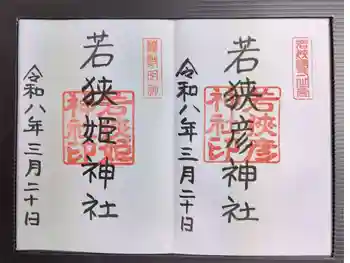 若狭彦神社
令和八年三月二十日
若狭彦
神社印
若狭姫神社
令和八年三月二十日
若狭姫
神社印